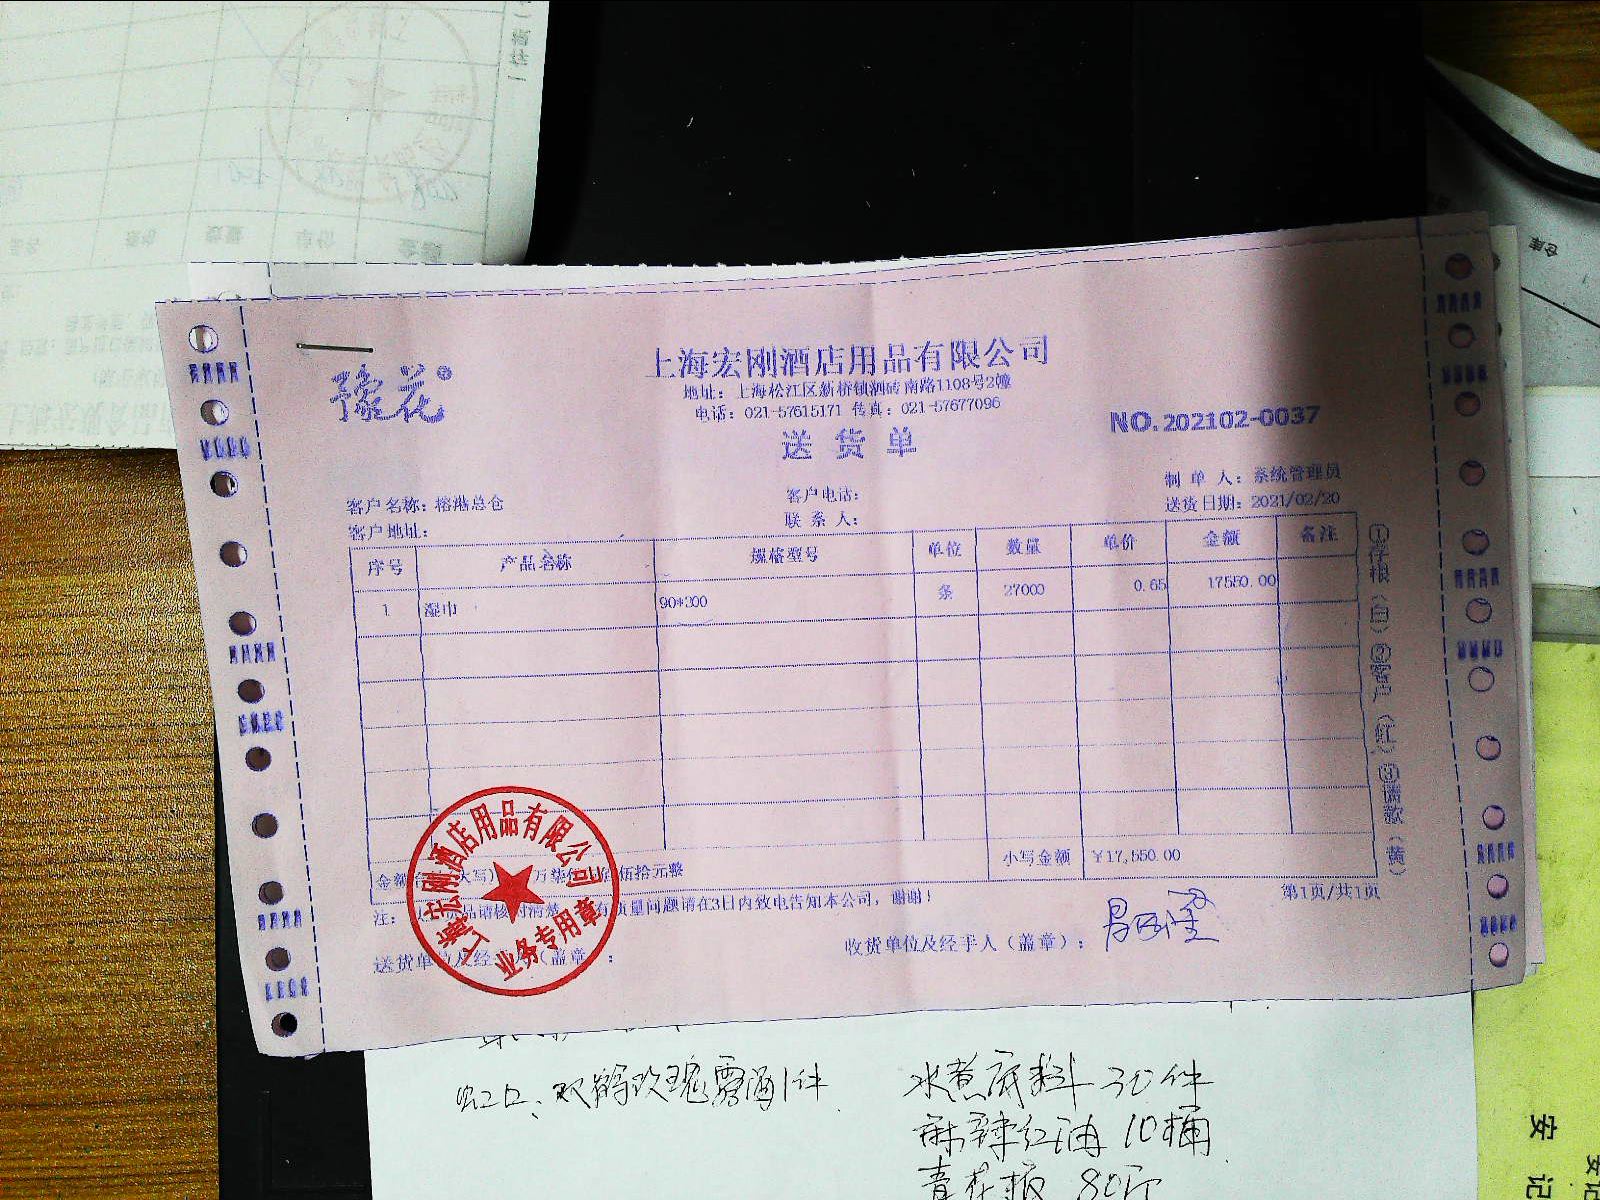 豫花
上海宏刚酒店用品有限公司
地址：上海松江区新桥镇泗砖南路1108号2幢
电话：021-57615171 传真：021-57677096
送 货 单
NO.202102-0037
制 单 人：系统管理员
客户名称：榕港总仓
客户电话：
送货日期：2021/02/20
客户地址：
联 系 人：
序号 产品名称 规格型号 单位 数量 单价 金额 备注
1 湿巾 90*200 条 27000 0.65 17550.00
①存根（白）②客户（红）③请款（黄）
伍拾元整
小写金额 ￥17,550.00
质量问题请在3日内致电告知本公司，谢谢！
第1页/共1页
送货单位及经手人（盖章）：
收货单位及经手人（盖章）：
上海宏刚酒店用品有限公司
业务专用章
虹口、双鹤玫瑰露酒1件
水煮底料 30件
麻辣红油 10桶
青花椒 80斤
仓库
安
记